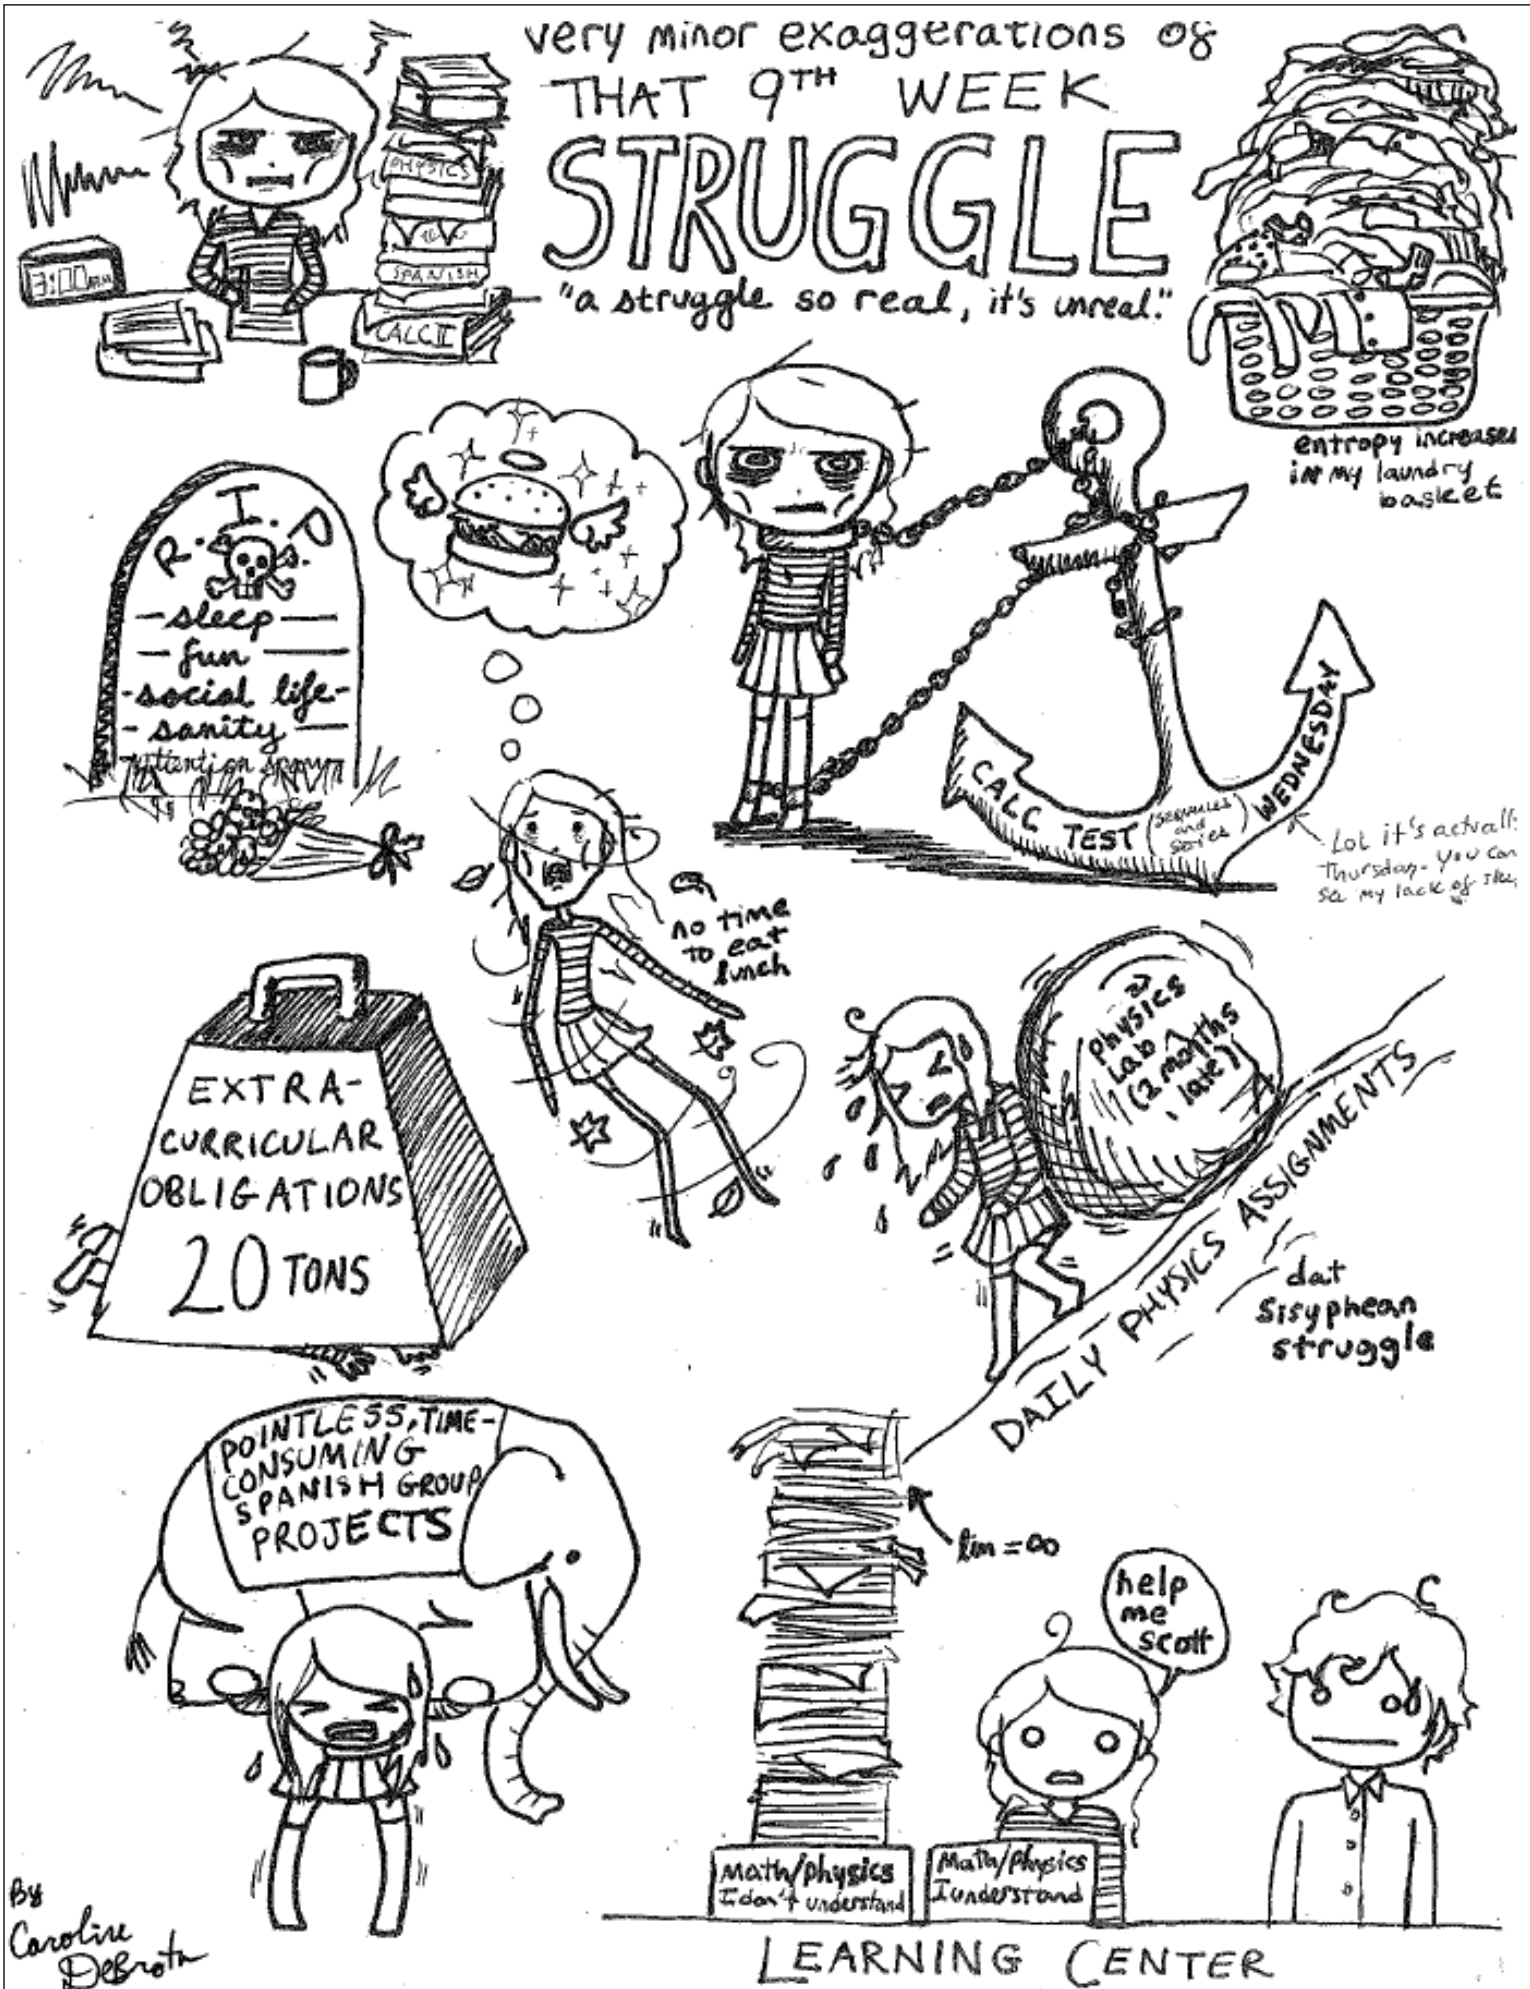 very minor exaggerations of
THAT 9TH WEEK
STRUGGLE
"a struggle so real, it's unreal."
3:00
PHYSICS
SPANISH
CALC II
entropy increases
in my laundry
basket
R.I.P.
sleep
fun
social life
sanity
attention span
CALC TEST (sequences and series) WEDNESDAY
Lol it's actually
Thursday - you can
see my lack of
no time
to eat
lunch
EXTRA-
CURRICULAR
OBLIGATIONS
20 TONS
physics
Lab
(2 months
late)
DAILY PHYSICS ASSIGNMENTS
dat
Sisyphean
struggle
POINTLESS, TIME-
CONSUMING
SPANISH GROUP
PROJECTS
lim = ∞
help
me
scott
Math/physics
I don't understand
Math/Physics
I understand
LEARNING CENTER
By
Caroline